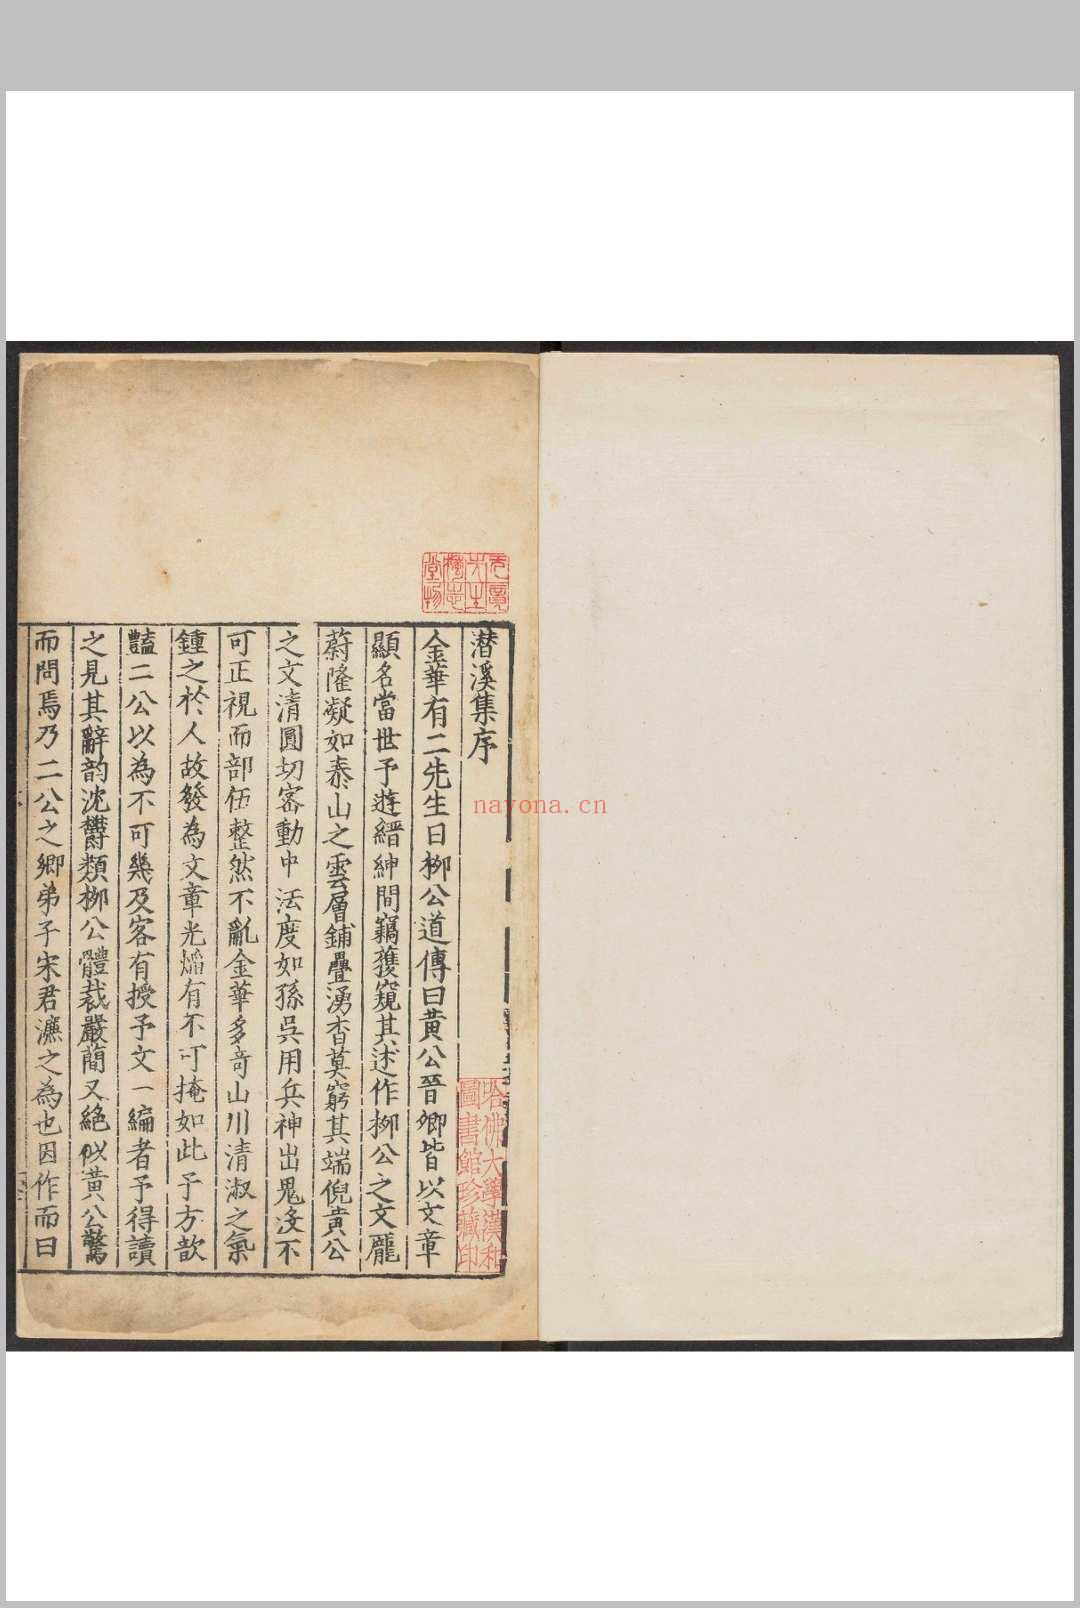 潛溪集序
金華有二先生曰栁公道傳曰黃公晉卿皆以文章
顯名當世予遊縉紳間竊獲窺其述作栁公之文龐
蔚隆凝如泰山之雲層鋪疊湧杳莫窮其端倪黃公
之文清圓切宻動中法度如孫吳用兵神出鬼沒不
可正視而部伍整然不亂金華多竒山川清淑之氣
鍾之於人故發為文章光焰有不可掩如此予方歆
豔二公以為不可幾及客有授予文一編者予得讀
之見其辭韵沈欝類栁公體裁嚴簡又絕似黃公驚
而問焉乃二公之鄉弟子宋君濂之為也因作而曰
哈佛大學漢和
圖書館珍藏印
nayona.cn